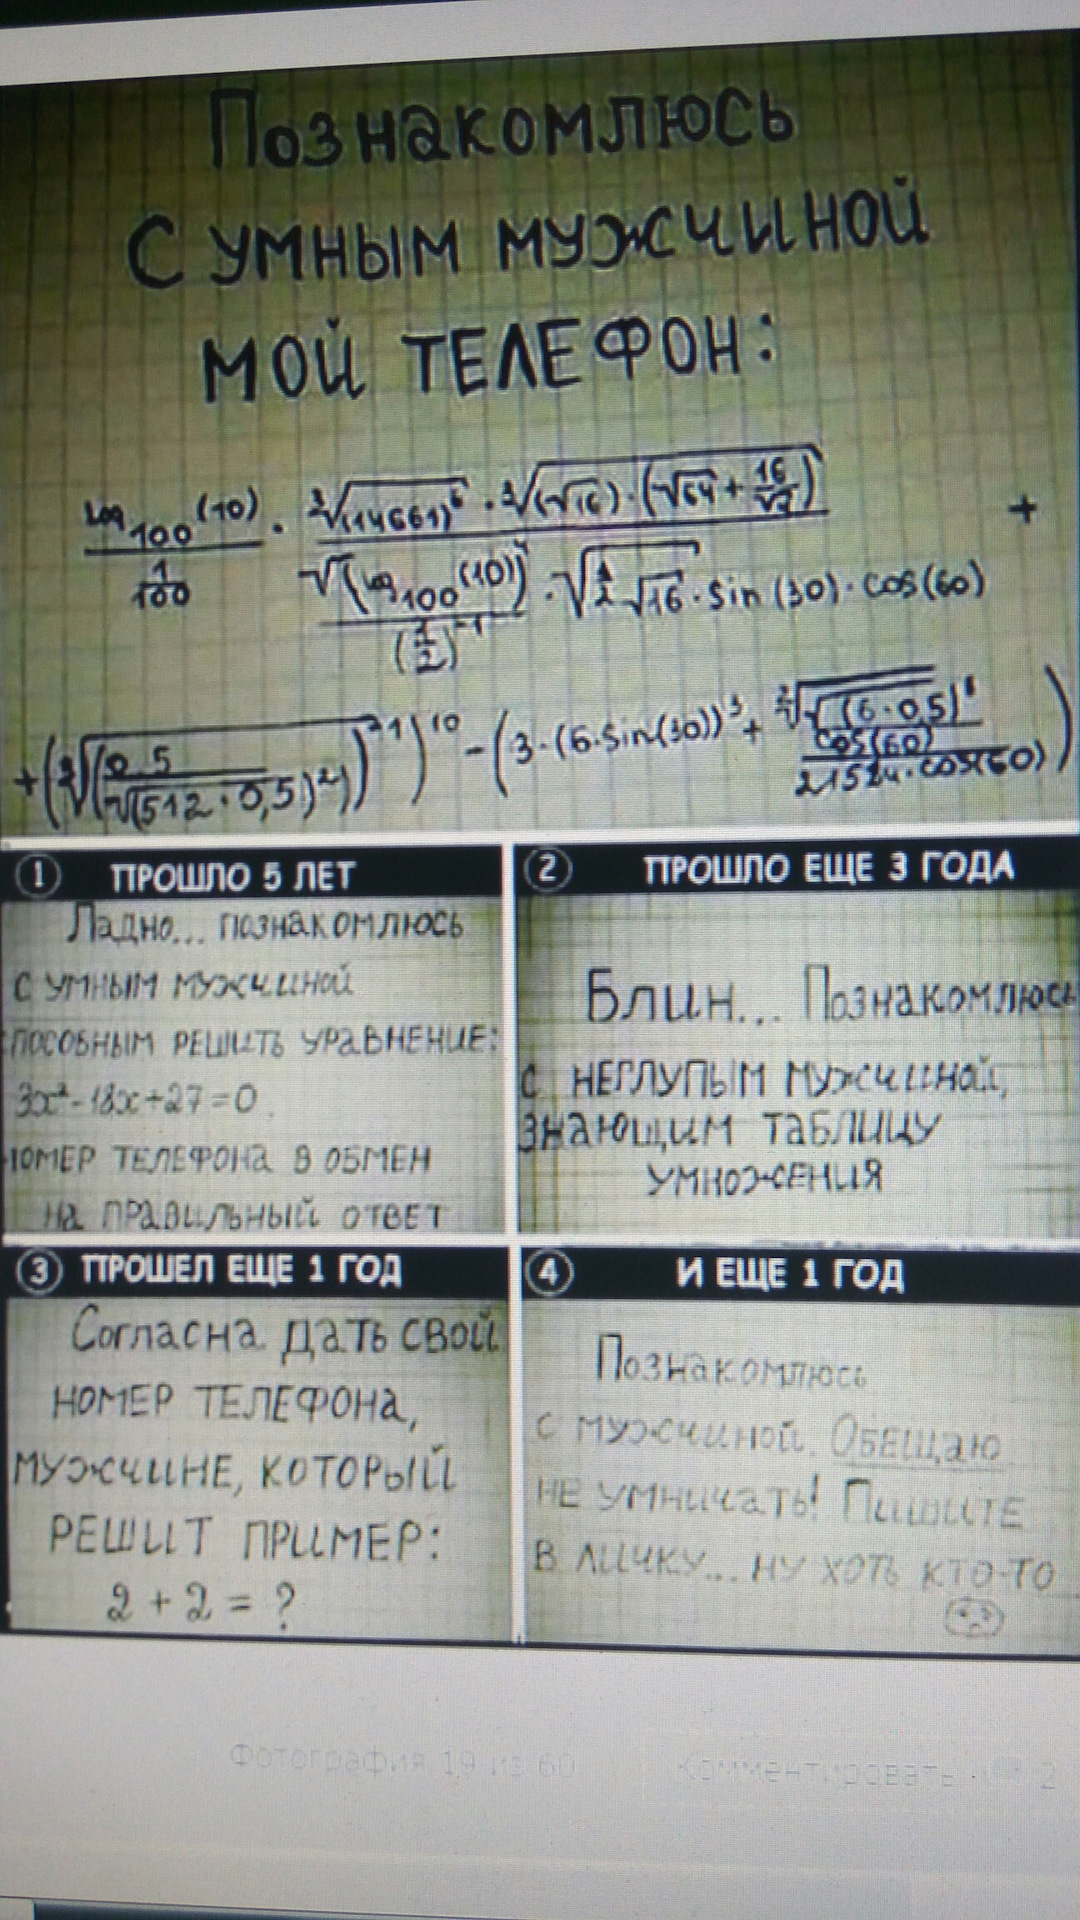 Познакомлюсь
с умным мужчиной
мой телефон:
log₁₀₀(10) / (1/100) · ∛(14661)⁶ · ∛((√16) · (√64 + 16/√
+
√(log₁₀₀(10)) / (1/2)⁻¹ · √(1/2 √16) · sin(30) · cos(60)
+ (0,5 / √(512 · 0,5)²))⁻¹)¹⁰ − (3 · (6 · sin(30))³ + √(6 · 0,5) cos(60) / cos(60))
1 ПРОШЛО 5 ЛЕТ
Ладно... познакомлюсь
с умным мужчиной
способным решить уравнение:
3x² - 18x + 27 = 0
номер телефона в обмен
на правильный ответ
2 ПРОШЛО ЕЩЕ 3 ГОДА
Блин... Познакомлюсь
с неглупым мужчиной,
знающим таблицу
умножения
3 ПРОШЕЛ ЕЩЕ 1 ГОД
Согласна дать свой
номер телефона,
мужчине, который
решит пример:
2 + 2 = ?
4 И ЕЩЕ 1 ГОД
Познакомлюсь
с мужчиной. Обещаю
не умничать! Пишите
в личку... ну хоть кто-то
Фотография 19 из 60
Комментировать 2